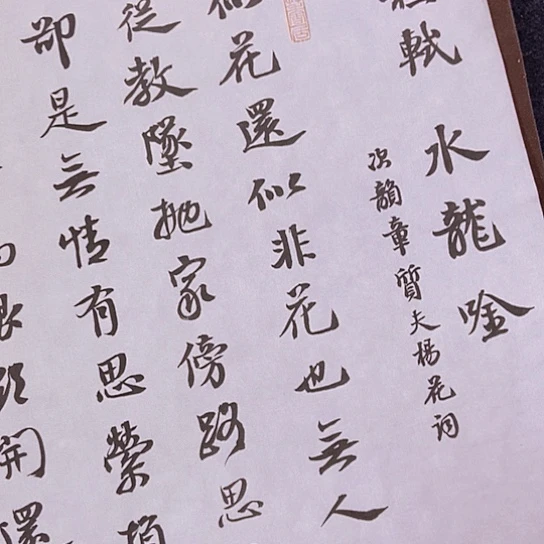 軾
水龍唫
次韻章質夫楊花詞
似花還似非花也無人
從教墜拋家傍路思
卻是無情有思縈損
眼欲開還